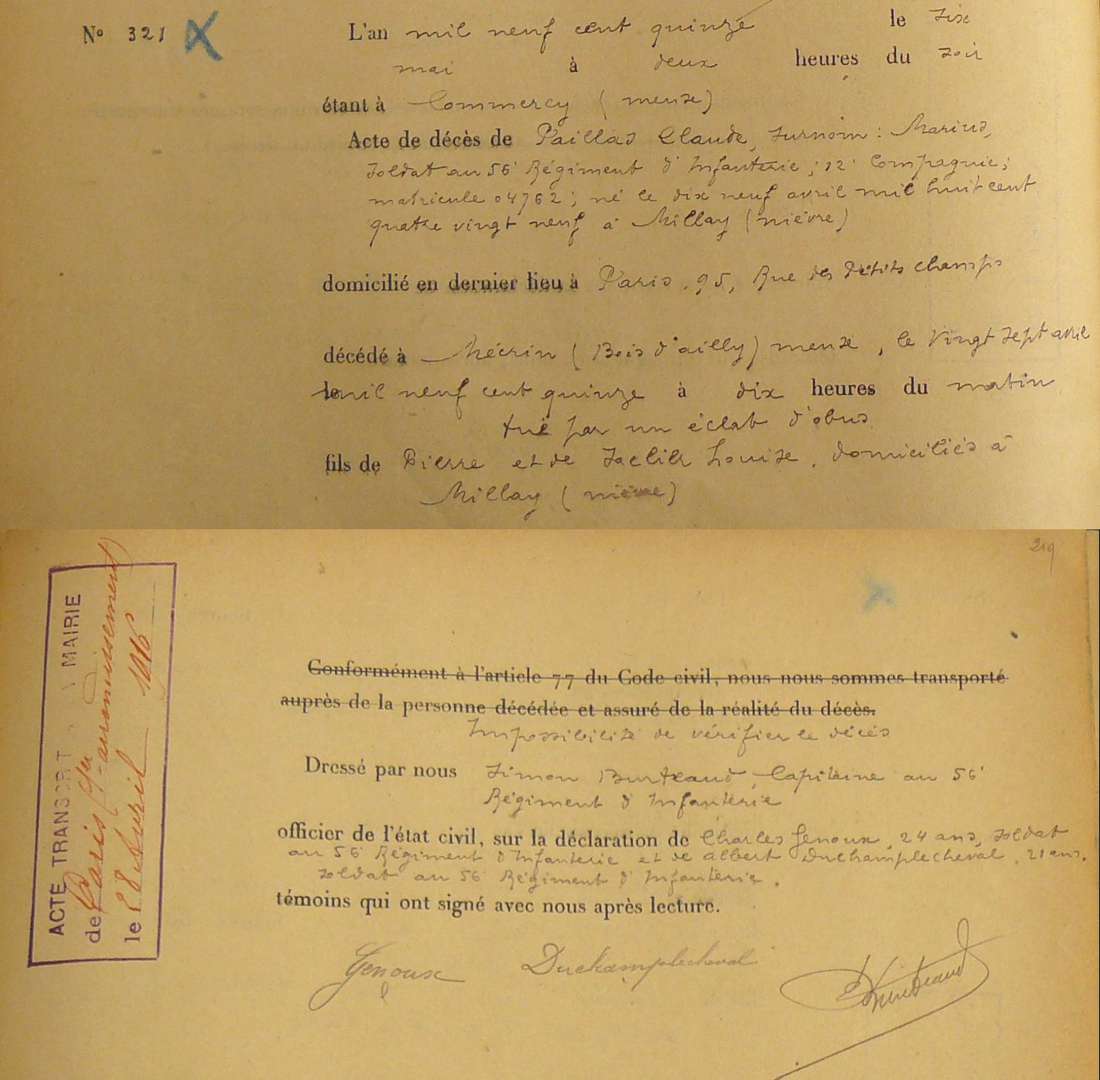 N° 321 L'an mil neuf cent quinze le six
mai à deux heures du soir
étant à Commercy (meuse)
Acte de décès de Paillas Claude, surnom : Marius,
soldat au 56e Régiment d'Infanterie ; 12e Compagnie ;
matricule 04762 ; né le dix neuf avril mil huit cent
quatre vingt neuf à Millay (nièvre)
domicilié en dernier lieu à Paris, 95, Rue des Petits Champs
décédé à Mécrin (Bois d'ailly) meuse, le vingt sept avril
mil neuf cent quinze à dix heures du matin
tué par un éclat d'obus
fils de Pierre et de Louise, domiciliés à
Millay (nièvre)
219
Conformément à l'article 77 du Code civil, nous nous sommes transporté
auprès de la personne décédée et assuré de la réalité du décès.
Impossibilité de vérifier le décès
Dressé par nous Simon Burteaud, Capitaine au 56e
Régiment d'Infanterie
officier de l'état civil, sur la déclaration de Charles Genoux, 24 ans, soldat
au 56e Régiment d'Infanterie et de albert Duchamplecheval, 21 ans,
soldat au 56e Régiment d'Infanterie.
témoins qui ont signé avec nous après lecture.
Genoux Duchamplecheval
ACTE TRANSCRIT MAIRIE
de Paris (1er arrondissement)
le 28 avril 1916